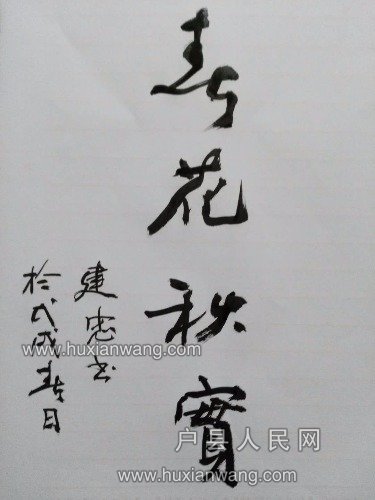 春花秋實
建忠书
於戊戌春日
www.huxianwang.com
户县人民网
www.huxianwang.com